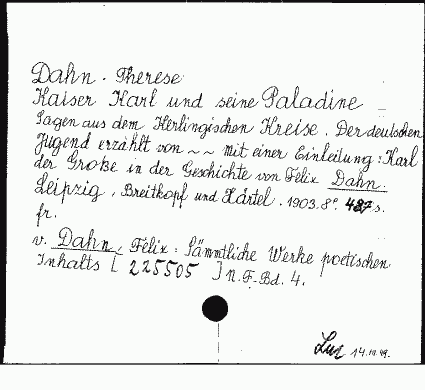 Dahn. Therese
Kaiser Karl und seine Paladine
Sagen aus dem Kerlingischen Kreise. Der deutschen
Jugend erzählt von ~ ~ mit einer Einleilung: Karl
der Große in der Geschichte von Felix Dahn.
Leipzig, Breitkopf und Härtel. 1903. 8°. 487 s.
fr.
v. Dahn, Felix: Sämmtliche Werke poetischen
Inhalts [ 225505 ] N.F. Bd. 4.
14.III.99.